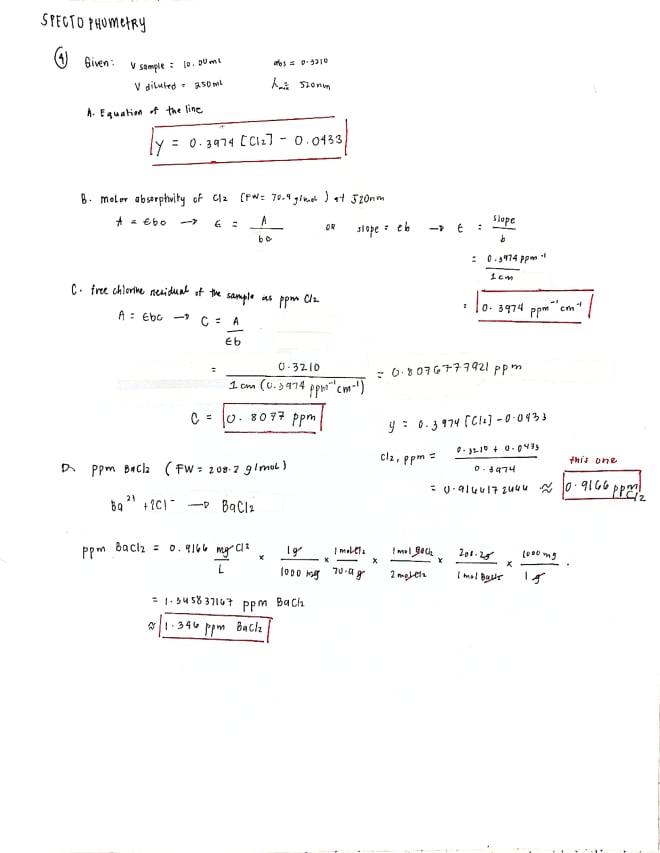 SPECTO PHUMETRY
④ Given: V sample = 10.00 mL abs = 0.3210
V diluted = 250 mL λmax = 520nm
A. Equation of the line
y = 0.3974 [Cl2] - 0.0433
B. molar absorptivity of Cl2 (FW= 70.9 g/mol) at 520nm
A = εbc → ε = A/bc OR slope = εb → ε = slope/b
= 0.3974 ppm⁻¹/1cm
= 0.3974 ppm⁻¹cm⁻¹
C. free chlorine residual of the sample as ppm Cl2
A = εbc → C = A/εb
= 0.3210/1cm (0.3974 ppm⁻¹cm⁻¹) = 0.8076777921 ppm
C = 0.8077 ppm
y = 0.3974 [Cl2] - 0.0433
Cl2, ppm = 0.3210 + 0.0433/0.3974
this one
= 0.9166172 ≈ 0.9166 ppm Cl2
D. ppm BaCl2 (FW = 208.2 g/mol)
Ba²⁺ + 2Cl⁻ → BaCl2
ppm BaCl2 = 0.9166 mg Cl2/L × 1g/1000 mg × 1 mol Cl2/70.9 g × 1 mol BaCl2/2 mol Cl2 × 208.2g/1 mol BaCl2 × 1000 mg/1 g .
= 1.345837167 ppm BaCl2
≈ 1.346 ppm BaCl2